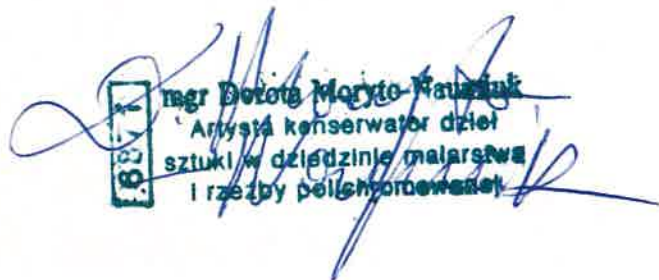 mgr Dorota Moryto-Naumiuk
Artysta konserwator dzieł
sztuki w dziedzinie malarstwa
i rzeźby polichromowanej